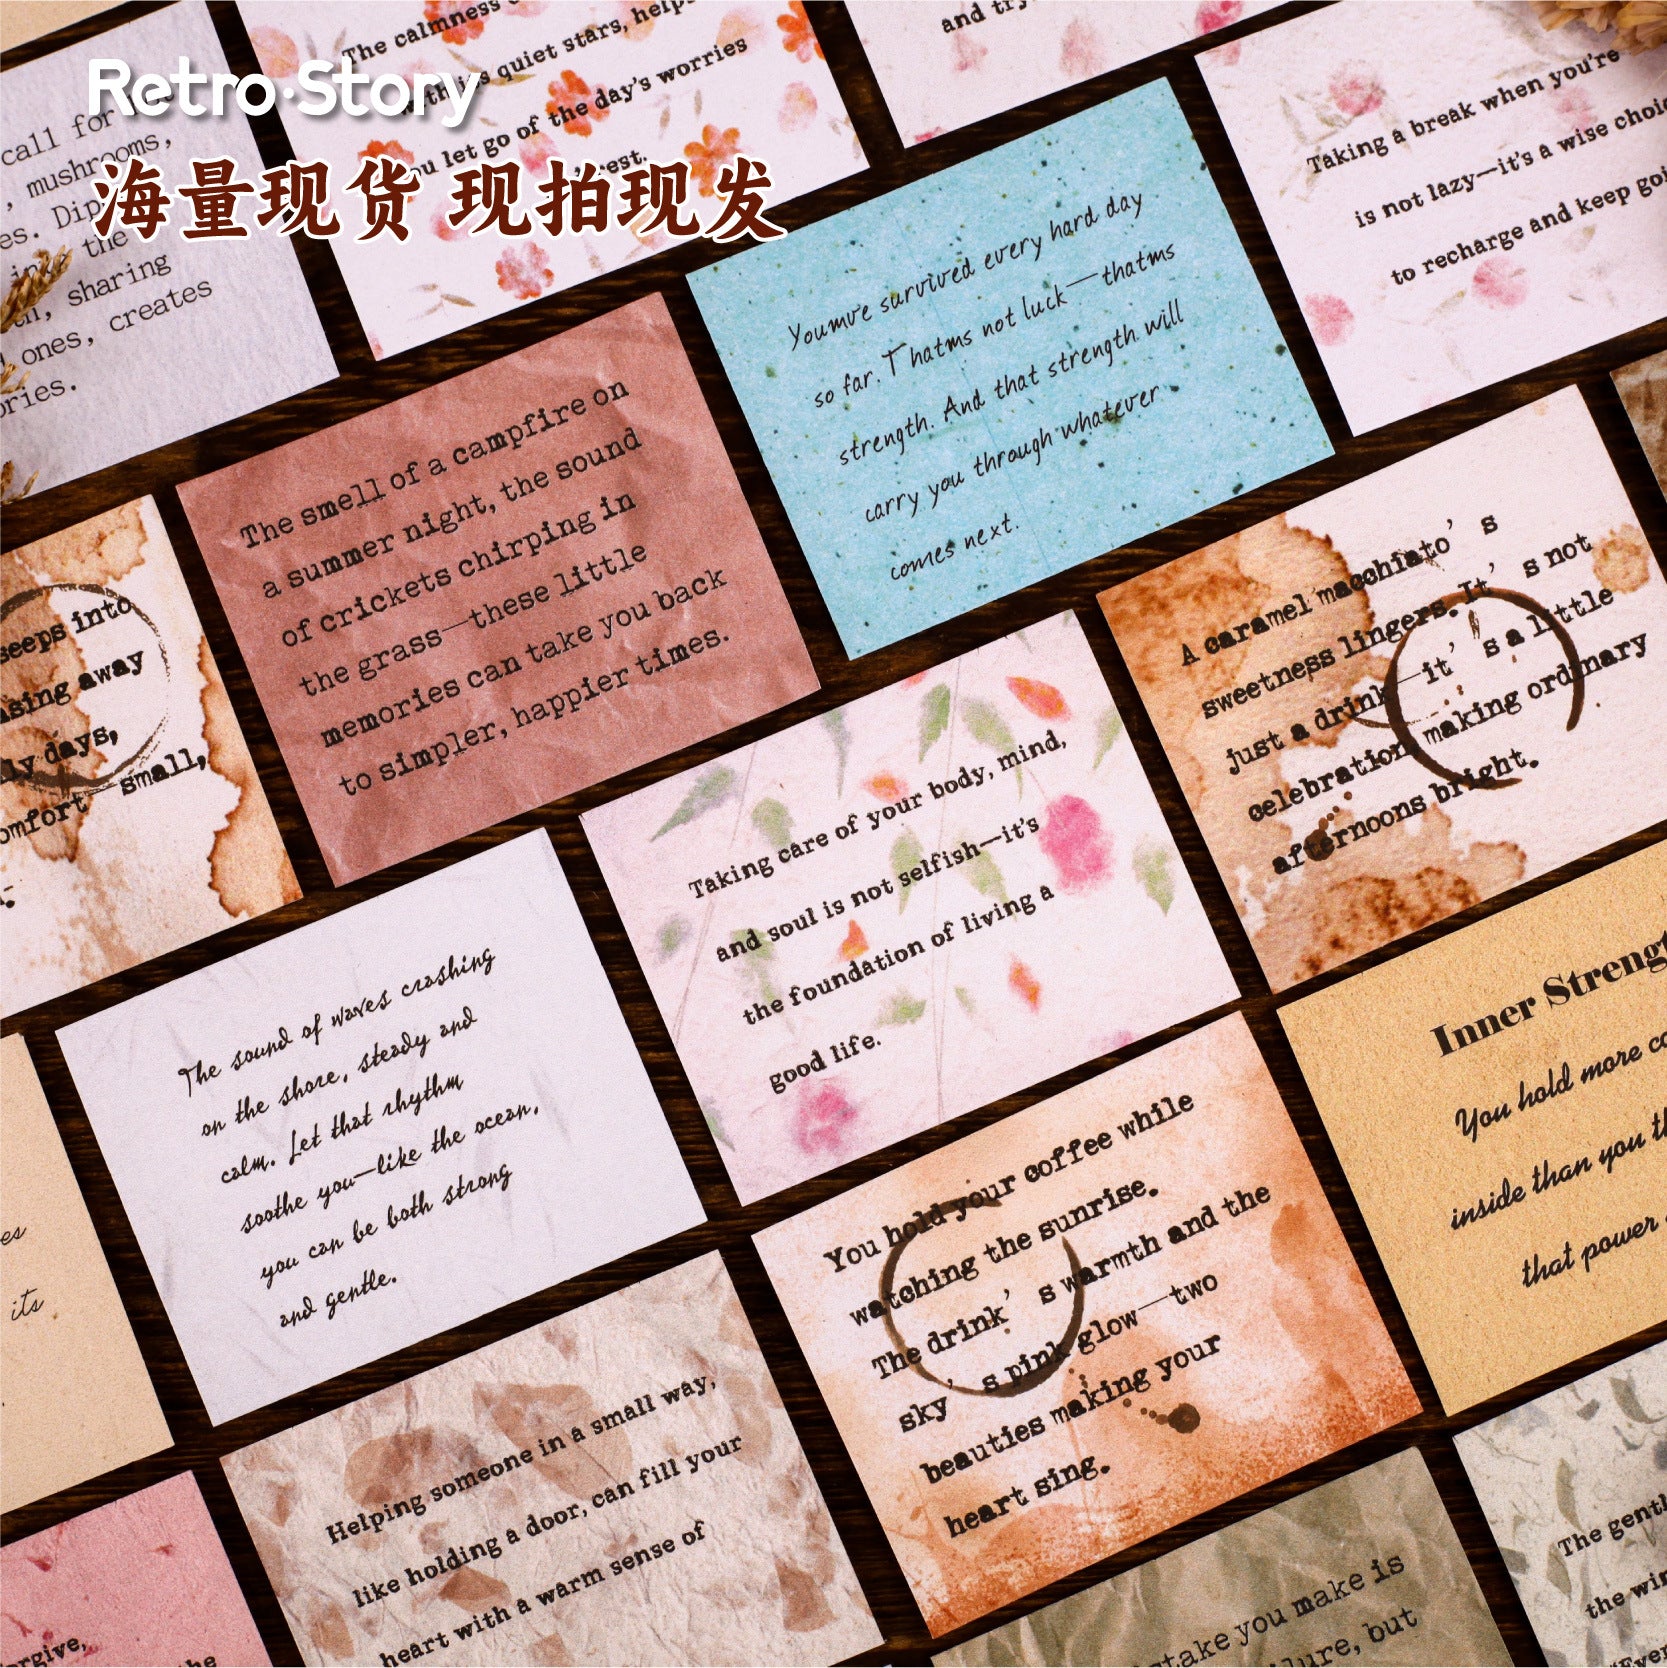 Retro·Story
海量现货 现拍现发
call for
mushrooms,
es. Dip
the
sharing
ones, creates
ories.
The calmness
quiet stars, helps
you let go of the day's worries
rest.
and try
Taking a break when you're
is not lazy—it's a wise choice
to recharge and keep going
Youmve survived every hard day
so far. Thatms not luck—thatms
strength. And that strength will
carry you through whatever
comes next.
The smell of a campfire on
a summer night, the sound
of crickets chirping in
the grass—these little
memories can take you back
to simpler, happier times.
seeps into
sing away
ly days,
omfort small,
A caramel macchiato's
sweetness lingers. It's not
just a drink—it's a little
celebration, making ordinary
afternoons bright.
Taking care of your body, mind,
and soul is not selfish—it's
the foundation of living a
good life.
The sound of waves crashing
on the shore, steady and
calm. Let that rhythm
soothe you—like the ocean,
you can be both strong
and gentle.
Inner Streng
You hold more co
inside than you th
that power
You hold your coffee while
watching the sunrise.
The drink's warmth and the
sky's pink glow—two
beauties making your
heart sing.
es
its
Helping someone in a small way,
like holding a door, can fill your
heart with a warm sense of
orgive,
the
take you make is
lure, but
The gentl
the win
"Ever